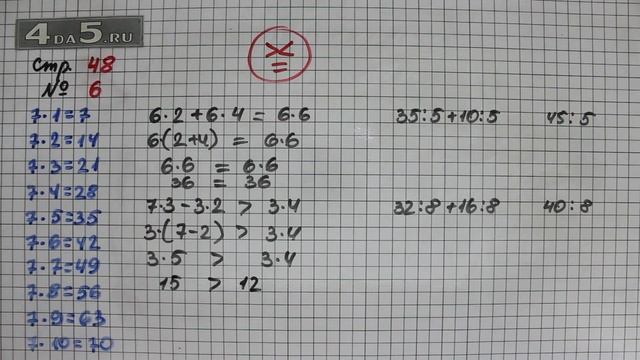 4DA5.RU
Стр. 48
№ 6
×
=
7·1=7
7·2=14
7·3=21
7·4=28
7·5=35
7·6=42
7·7=49
7·8=56
7·9=63
7·10=70
6·2+6·4 = 6·6
6(2+4) = 6·6
6·6 = 6·6
36 = 36
7·3-3·2 > 3·4
3·(7-2) > 3·4
3·5 > 3·4
15 > 12
35:5+10:5 45:5
32:8+16:8 40:8